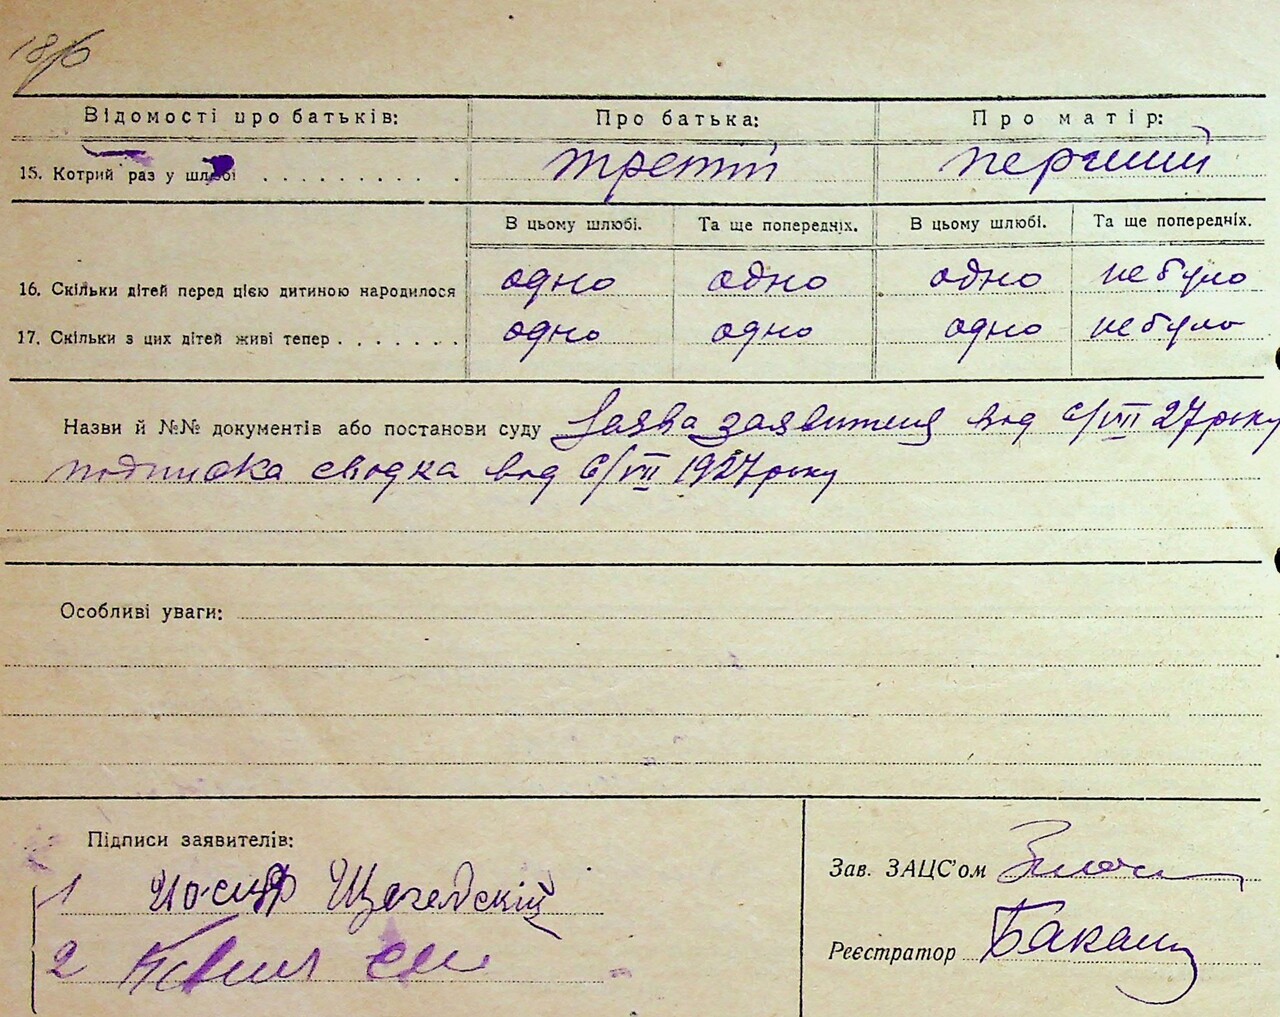 Відомості про батьків: Про батька: Про матір:
15. Котрий раз у шлюбі третій перший
В цьому шлюбі. Та ще попередніх. В цьому шлюбі. Та ще попередніх.
16. Скільки дітей перед цією дитиною народилося одно одно одно не було
17. Скільки з цих дітей живі тепер одно одно одно не було
Назви й №№ документів або постанови суду Заява заявителя від 6/VII 27 року
подписка свідка від 6/VII 1927 року
Особливі уваги:
Підписи заявителів:
1 Иосиф
2
Зав. ЗАЦС'ом
Реєстратор